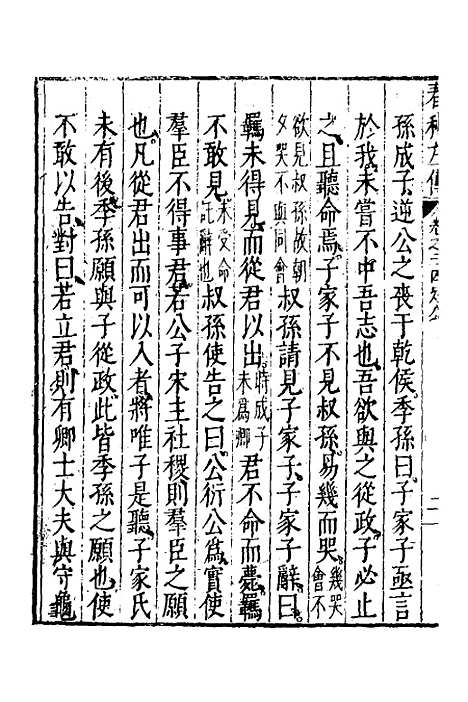 春秋左傳 卷之三四定公 二
孫成子逆公之喪于乾侯季孫曰子家子亟言
於我未嘗不中吾志也吾欲與之從政子必止
之且聽命焉子家子不見叔孫易幾而哭幾哭會不
欲見叔孫故朝夕哭不與同會叔孫請見子家子子家子辭曰
羈未得見而從君以出時成子未為卿君不命而薨羈
不敢見未受命託辭也叔孫使告之曰公衍公為實使
羣臣不得事君若公子宋主社稷則羣臣之願
也凡從君出而可以入者將唯子是聽子家氏
未有後季孫願與子從政此皆季孫之願也使
不敢以告對曰若立君則有卿士大夫與守龜